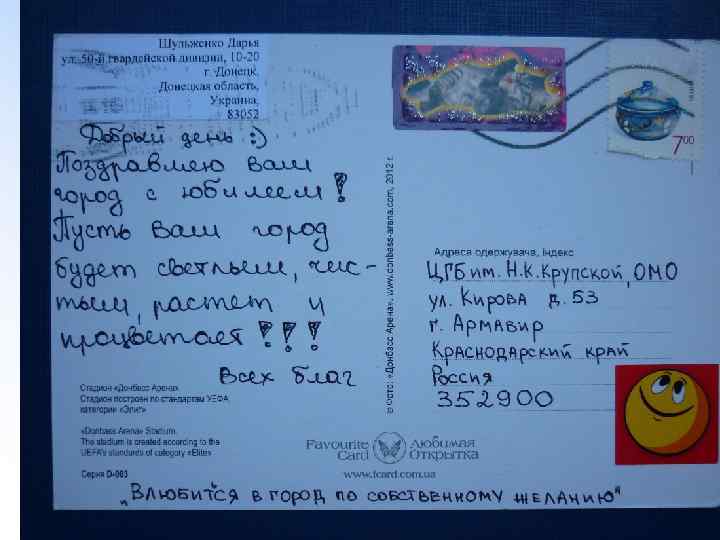 Шульженко Дарья
ул. 50-й гвардейской дивизии, 10-20
г. Донецк,
Донецкая область,
Украина,
83052
Добрый день :)
Поздравляю ваш
город с юбилеем!
Пусть ваш город
будет светлым, чис-
тым, растет и
процветает!!!
Всех благ
Стадион «Донбасс Арена».
Стадион построен по стандартам УЕФА
категории «Элит»
«Donbass Arena» Stadium.
The stadium is created according to the
UEFA's standards of category «Elite»
Серия D-003
© Фото: «Донбасс Арена», www.donbass-arena.com, 2012 г.
7 00
Адреса одержувача, індекс
ЦГБ им. Н.К. Крупской, ОМО
ул. Кирова д. 53
г. Армавир
Краснодарский край
Россия
352900
Favourite Card
Любимая Открытка
www.fcard.com.ua
„Влюбиться в город по собственному желанию"